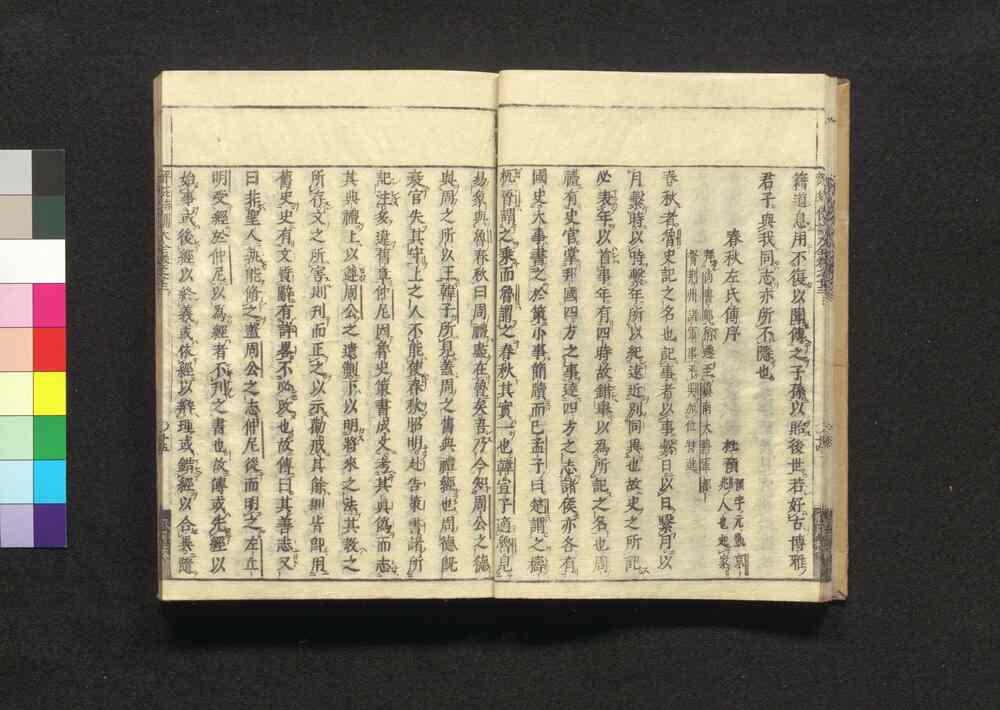 籍道息用不復以聞傳之子孫以貽後世若好古博雅
君子與我同志亦所不隱也
春秋左氏傳序
杜預預字元凱京兆人也起家
拜尚書郎
荊州諸軍事
春秋者魯史記之名也記事者以事繫日以日繫月以
月繫時以時繫年所以紀遠近別同異也故史之所記
必表年以首事年有四時故錯舉以為所記之名也周
禮有史官掌邦國四方之事達四方之志諸侯亦各有
國史大事書之於策小事簡牘而已孟子曰楚謂之檮
杌晉謂之乘而魯謂之春秋其實一也韓宣子適魯見
易象與魯春秋曰周禮盡在魯矣吾乃今知周公之德
與周之所以王韓子所見蓋周之舊典禮經也周德既
衰官失其守上之人不能使春秋昭明赴告策書諸所
記注多違舊章仲尼因魯史策書成文考其真偽而志
其典禮上以遵周公之遺制下以明將來之法其教之
所存文之所害則刊而正之以示勸戒其餘則皆即用
舊史史有文質辭有詳畧不必改也故傳曰其善志又
曰非聖人孰能脩之蓋周公之志仲尼從而明之左丘
明受經於仲尼以為經者不刊之書也故傳或先經以
始事或後經以終義或依經以辯理或錯經以合異隨